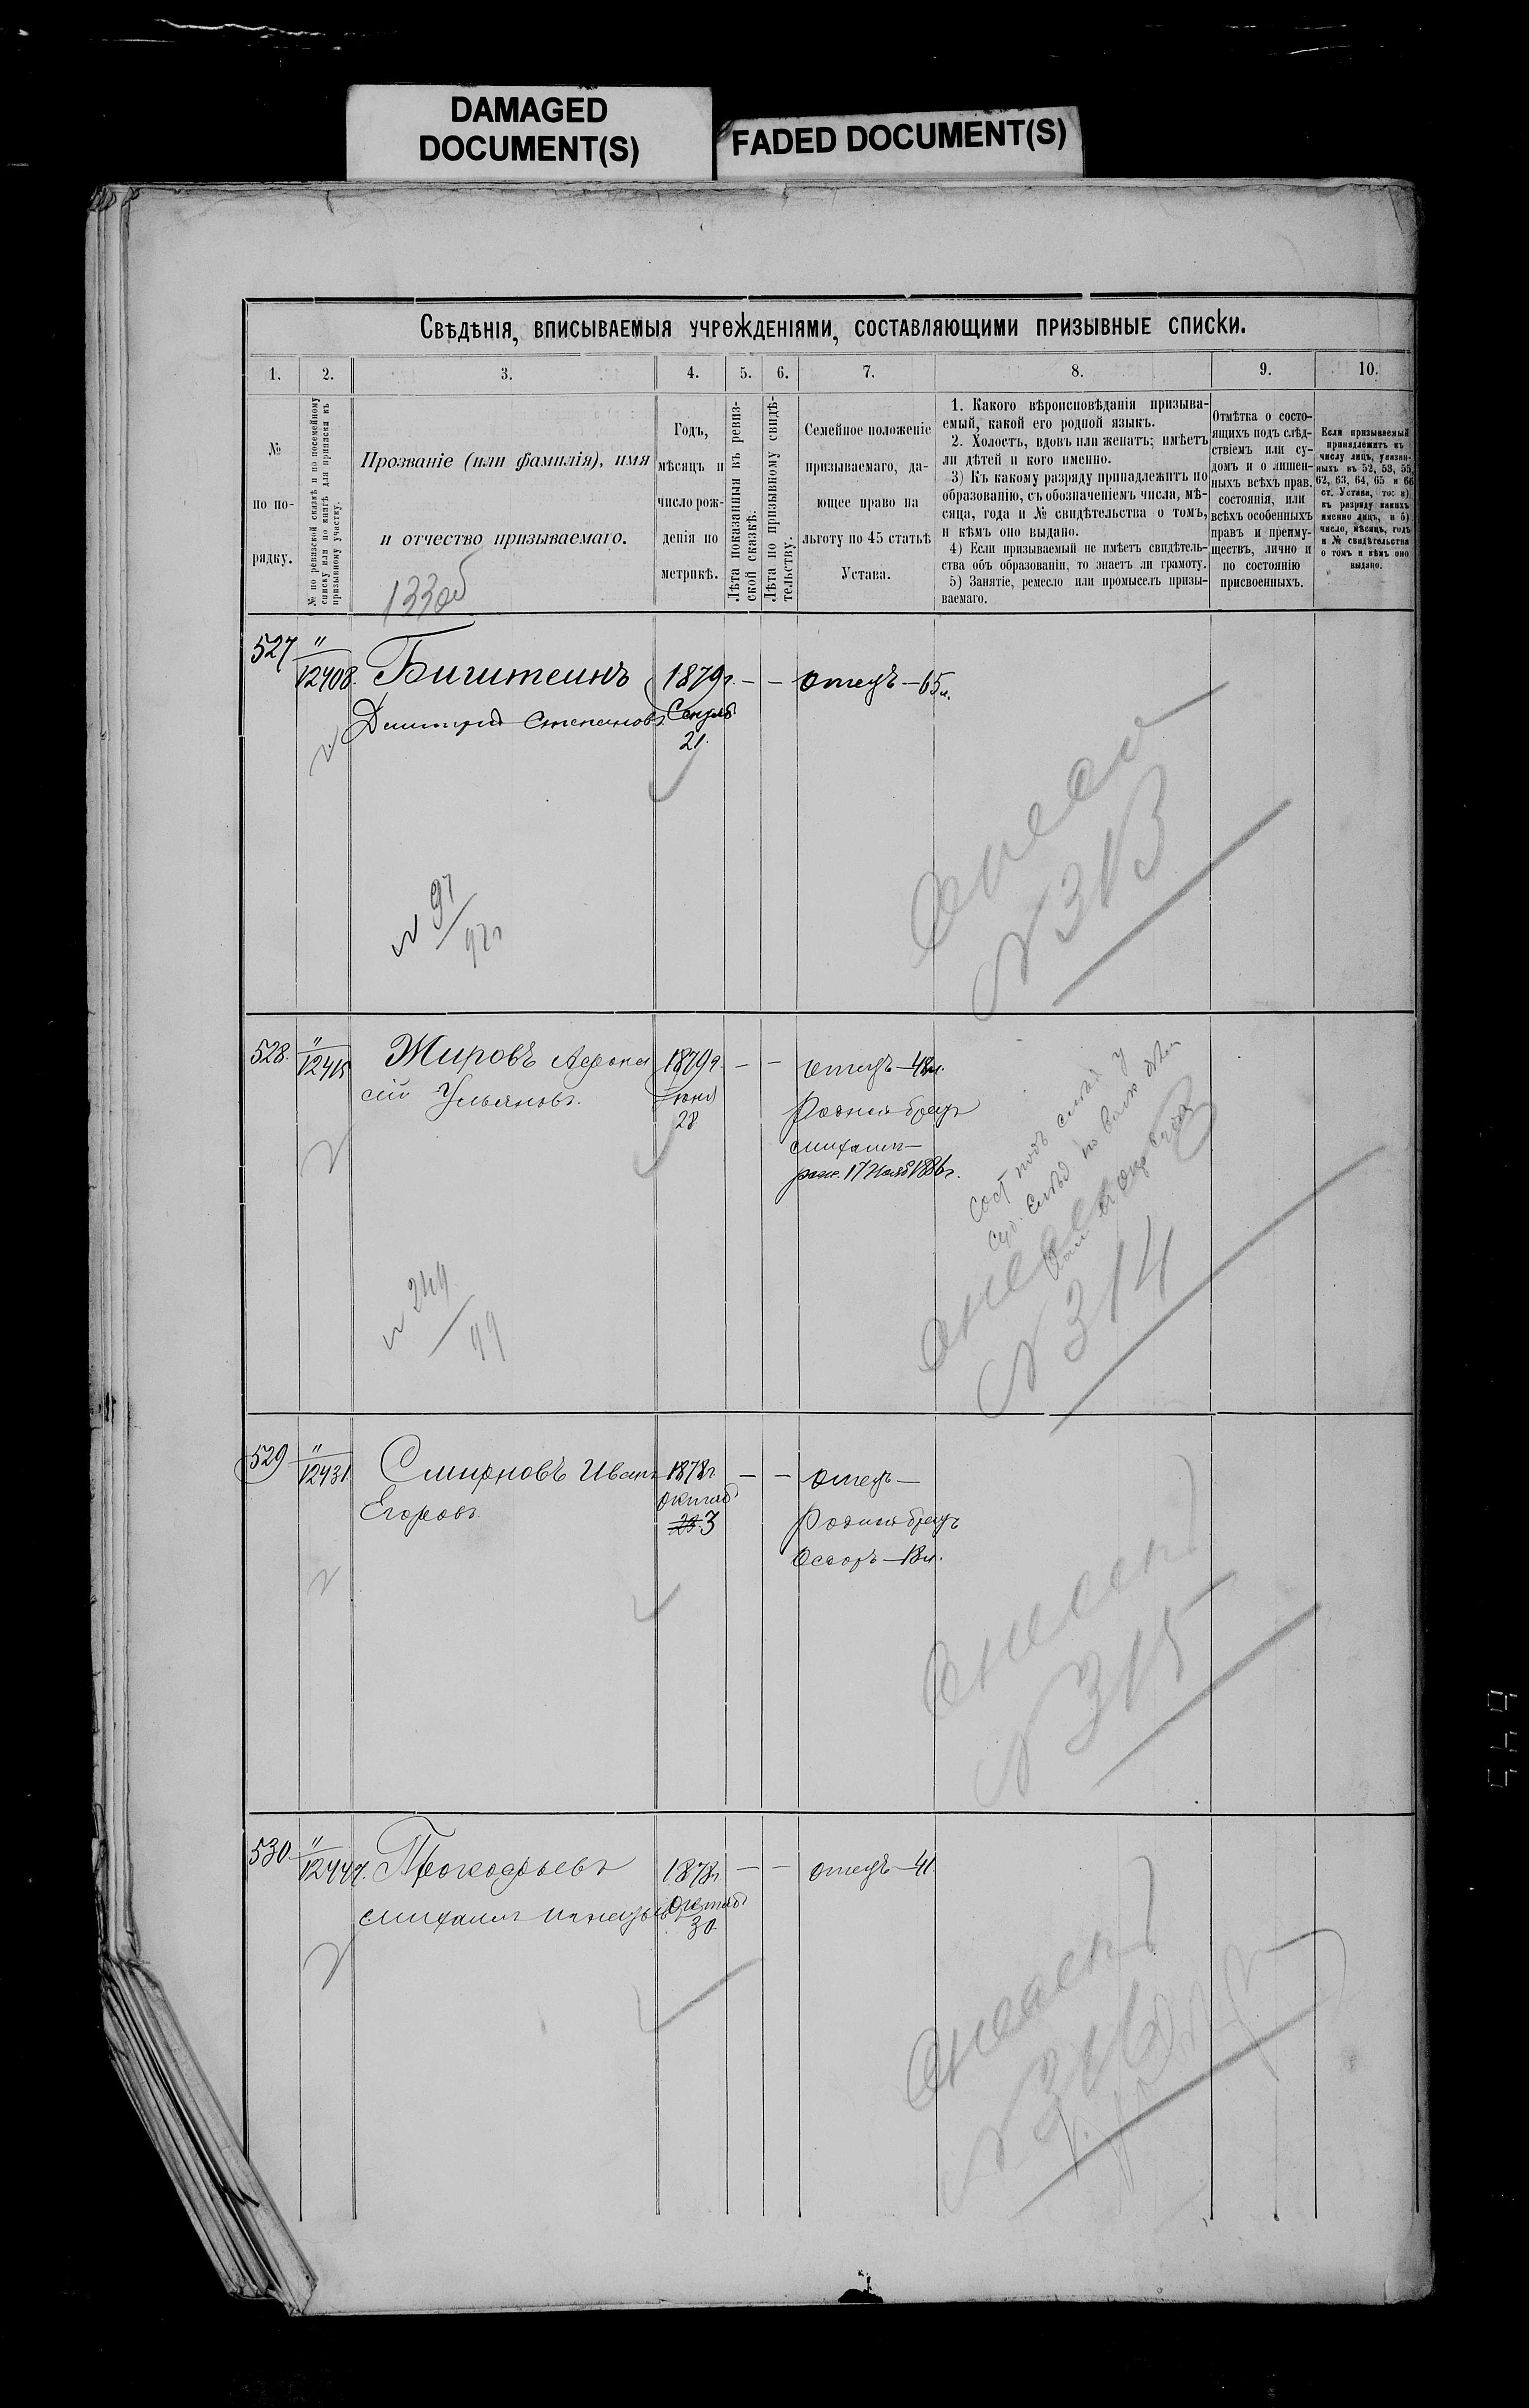 DAMAGED
DOCUMENT(S)
FADED DOCUMENT(S)
Свѣдѣнія, вписываемыя учрежденіями, составляющими призывные списки.
1.
2.
3.
4.
5.
6.
7.
8.
9.
10.
№
по по-
рядку.
№ по ревизской сказкѣ и по посемейному
списку или по книгѣ для приписки къ
призывному участку.
Прозваніе (или фамилія), имя
и отчество призываемаго.
133об
Годъ,
мѣсяцъ и
число рож-
денія по
метрикѣ.
Лѣта показанныя въ ревиз-
ской сказкѣ.
Лѣта по призывному свидѣ-
тельству.
Семейное положеніе
призываемаго, да-
ющее право на
льготу по 45 статьѣ
Устава.
1. Какого вѣроисповѣданія призыва-
емый, какой его родной языкъ.
2. Холостъ, вдовъ или женатъ; имѣетъ
ли дѣтей и кого именно.
3) Къ какому разряду принадлежитъ по
образованію, съ обозначеніемъ числа, мѣ-
сяца, года и № свидѣтельства о томъ,
и кѣмъ оно выдано.
4) Если призываемый не имѣетъ свидѣтель-
ства объ образованіи, то знаетъ ли грамоту.
5) Занятіе, ремесло или промыселъ призы-
ваемаго.
Отмѣтка о состо-
ящихъ подъ слѣд-
ствіемъ или су-
домъ и о лишен-
ныхъ всѣхъ прав.
состоянія, или
всѣхъ особенныхъ
правъ и преиму-
ществъ, лично и
по состоянію
присвоенныхъ.
Если призываемый
принадлежитъ къ
числу лицъ, указан-
ныхъ въ 52, 53, 55,
62, 63, 64, 65 и 66
ст. Устава, то: а)
къ разряду какихъ
именно лицъ, и б)
число, мѣсяцъ, годъ
и № свидѣтельства
о томъ и кѣмъ оно
выдано.
527
"
12408.
Бигштеинъ
Дмитрій Степановъ.
1879г.
Сентяб
21.
— —
отецъ — 65л.
N 97
97г
N 313
528.
"
12415
Жировъ Афона
сій Ульяновъ.
1879г.
Іюня
28
— —
отецъ — 48л.
Родной братъ
Михаилъ —
рож. 17 Нояб 1886г.
N 244
99
N 314
529
"
12431
Смирновъ Иванъ
Егоровъ.
1878г
Октяб
23 3
— —
отецъ —
Родной братъ
Ѳедоръ — 13л.
N 315
530.
"
12447.
Прокофьевъ
Михаилъ Игнатьевъ
1878г
Октяб
30.
— —
отецъ — 41
N 316
549